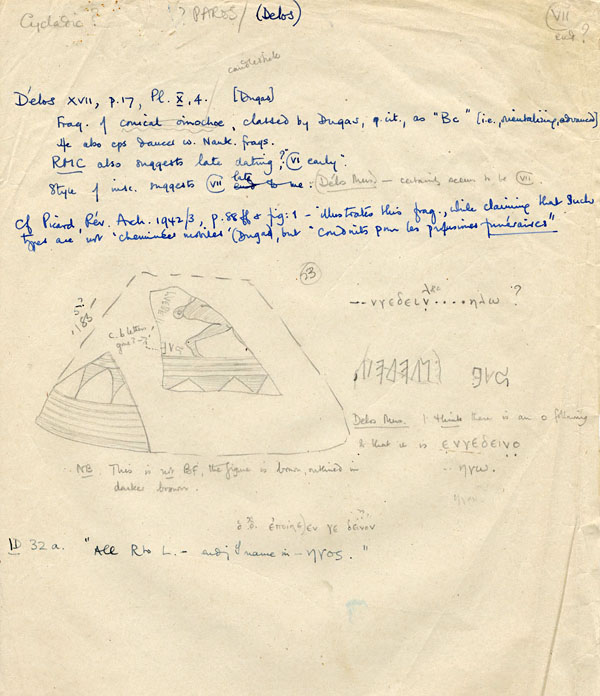 Cycladic? ? PAROS / (Delos)
VII
end?
candlestick
Délos XVII, p.17, Pl. X, 4. [Dugas]
Frag. of conical oinochoe, classed by Dugas, op. cit., as "Bc" [i.e., orientalizing, advanced]
He also cps dancer w. Nauk. frags.
RMC also suggests late dating? VII early.
Style of insc. suggests VII late to me. Délos Mus. — certainly seems to be VII.
Cf Picard, Rév. Arch. 1942/3, p. 88 ff & fig. 1 - illustrates this frag., while claiming that such
types are not 'cheminées mobiles' (Dugas), but "conduits pour les profusions funéraires"
23
·183
c. 6 letters
gone?
---νγεδειν....ηλω ?
Delos Mus. I think there is an o following
& that it is ενγεδεινο
..ηνω.
NB. This is not BF, the figure is brown, outlined in
darker brown.
εν γε δεινον
ID 32a. "All R to L. — ending of name in -ηνος."